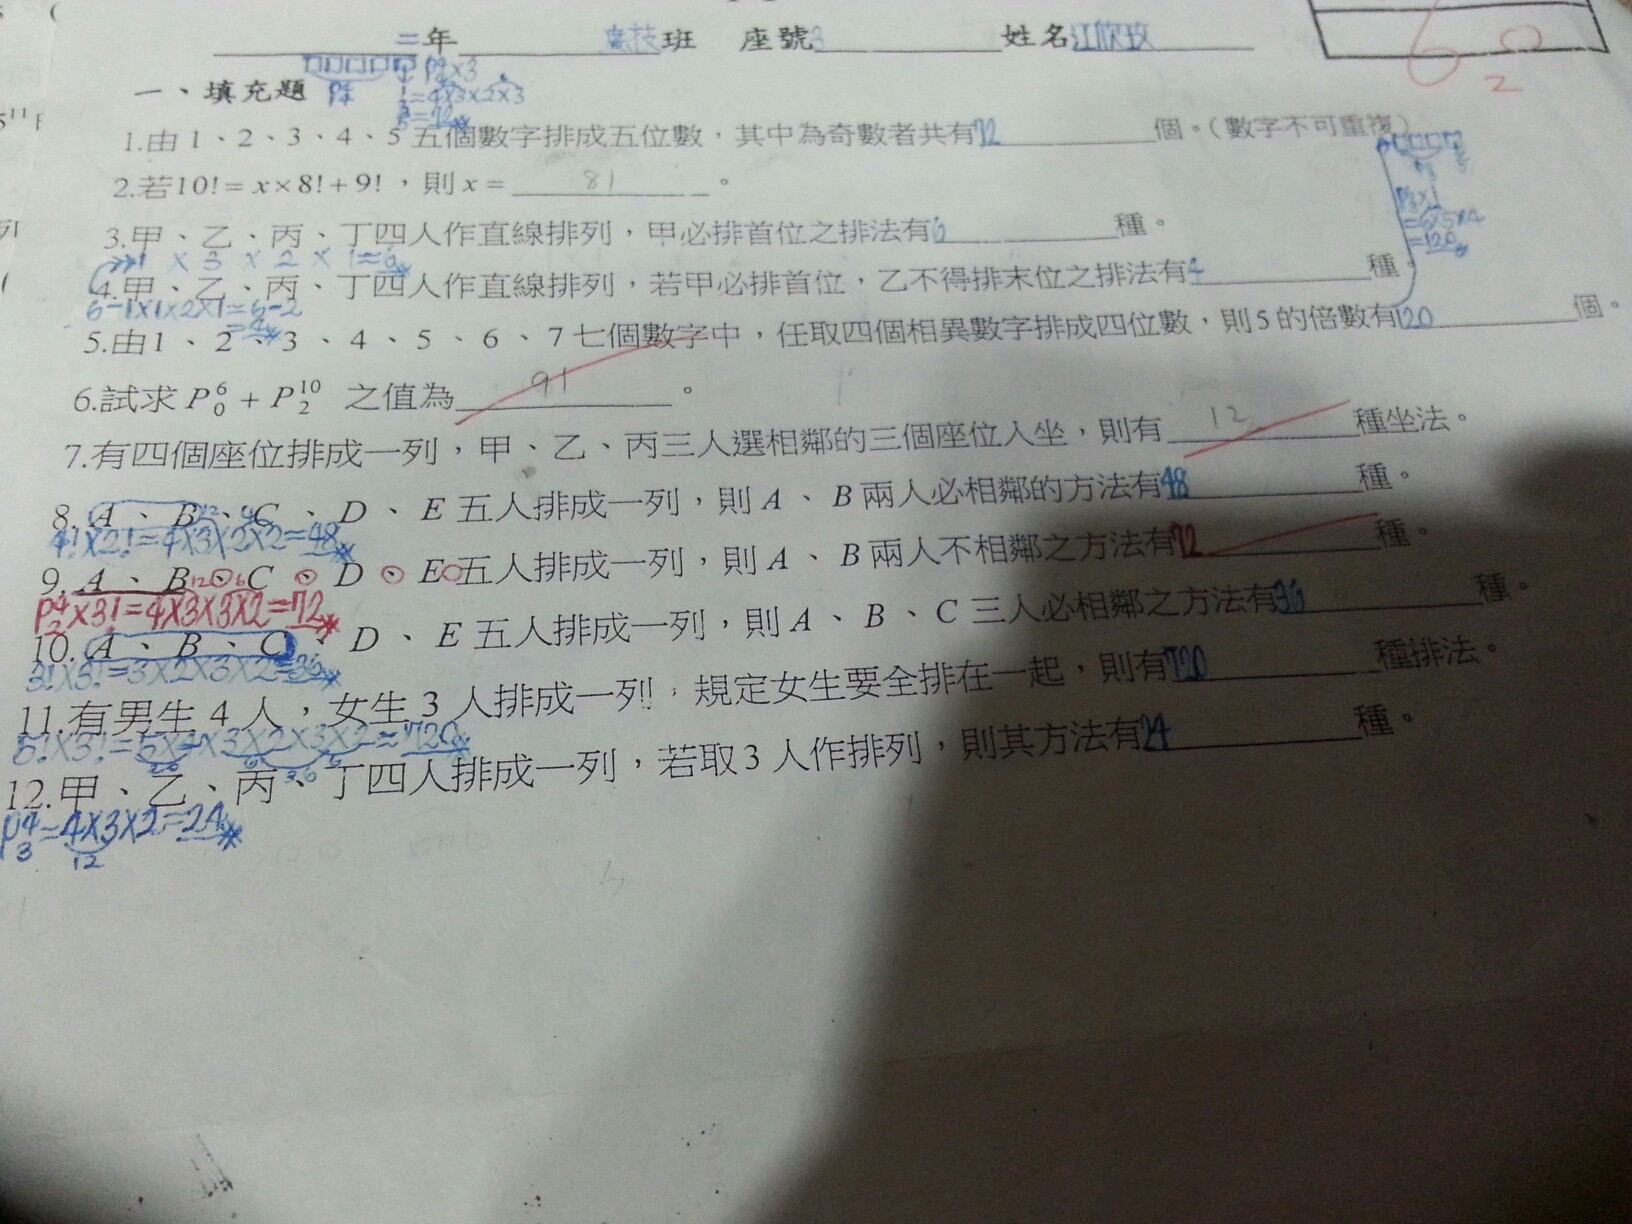 二年 班 座號 姓名 江欣玫
60
2
一、填充題
P⁴₄×3
=4×3×2×3
=72
1.由1、2、3、4、5五個數字排成五位數，其中為奇數者共有72個。（數字不可重複）
2.若10!=x×8!+9!，則x=81。
3.甲、乙、丙、丁四人作直線排列，甲必排首位之排法有6種。
1×3×2×1=6
4.甲、乙、丙、丁四人作直線排列，若甲必排首位，乙不得排末位之排法有4種。
6-1×1×2×1=6-2
=4
5.由1、2、3、4、5、6、7七個數字中，任取四個相異數字排成四位數，則5的倍數有120個。
=6×5×4
=120
6.試求P⁶₀+P¹⁰₂之值為91。
7.有四個座位排成一列，甲、乙、丙三人選相鄰的三個座位入坐，則有12種坐法。
8.A、B、C、D、E五人排成一列，則A、B兩人必相鄰的方法有48種。
4!×2!=4×3×2×2=48
9.A、B、C、D、E五人排成一列，則A、B兩人不相鄰之方法有72種。
P⁴₂×3!=4×3×3×2=72
10.A、B、C、D、E五人排成一列，則A、B、C三人必相鄰之方法有36種。
3!×3!=3×2×3×2=36
11.有男生4人，女生3人排成一列，規定女生要全排在一起，則有720種排法。
5!×3!=5×4×3×2×3×2=720
12.甲、乙、丙、丁四人排成一列，若取3人作排列，則其方法有24種。
P⁴₃=4×3×2=24
12